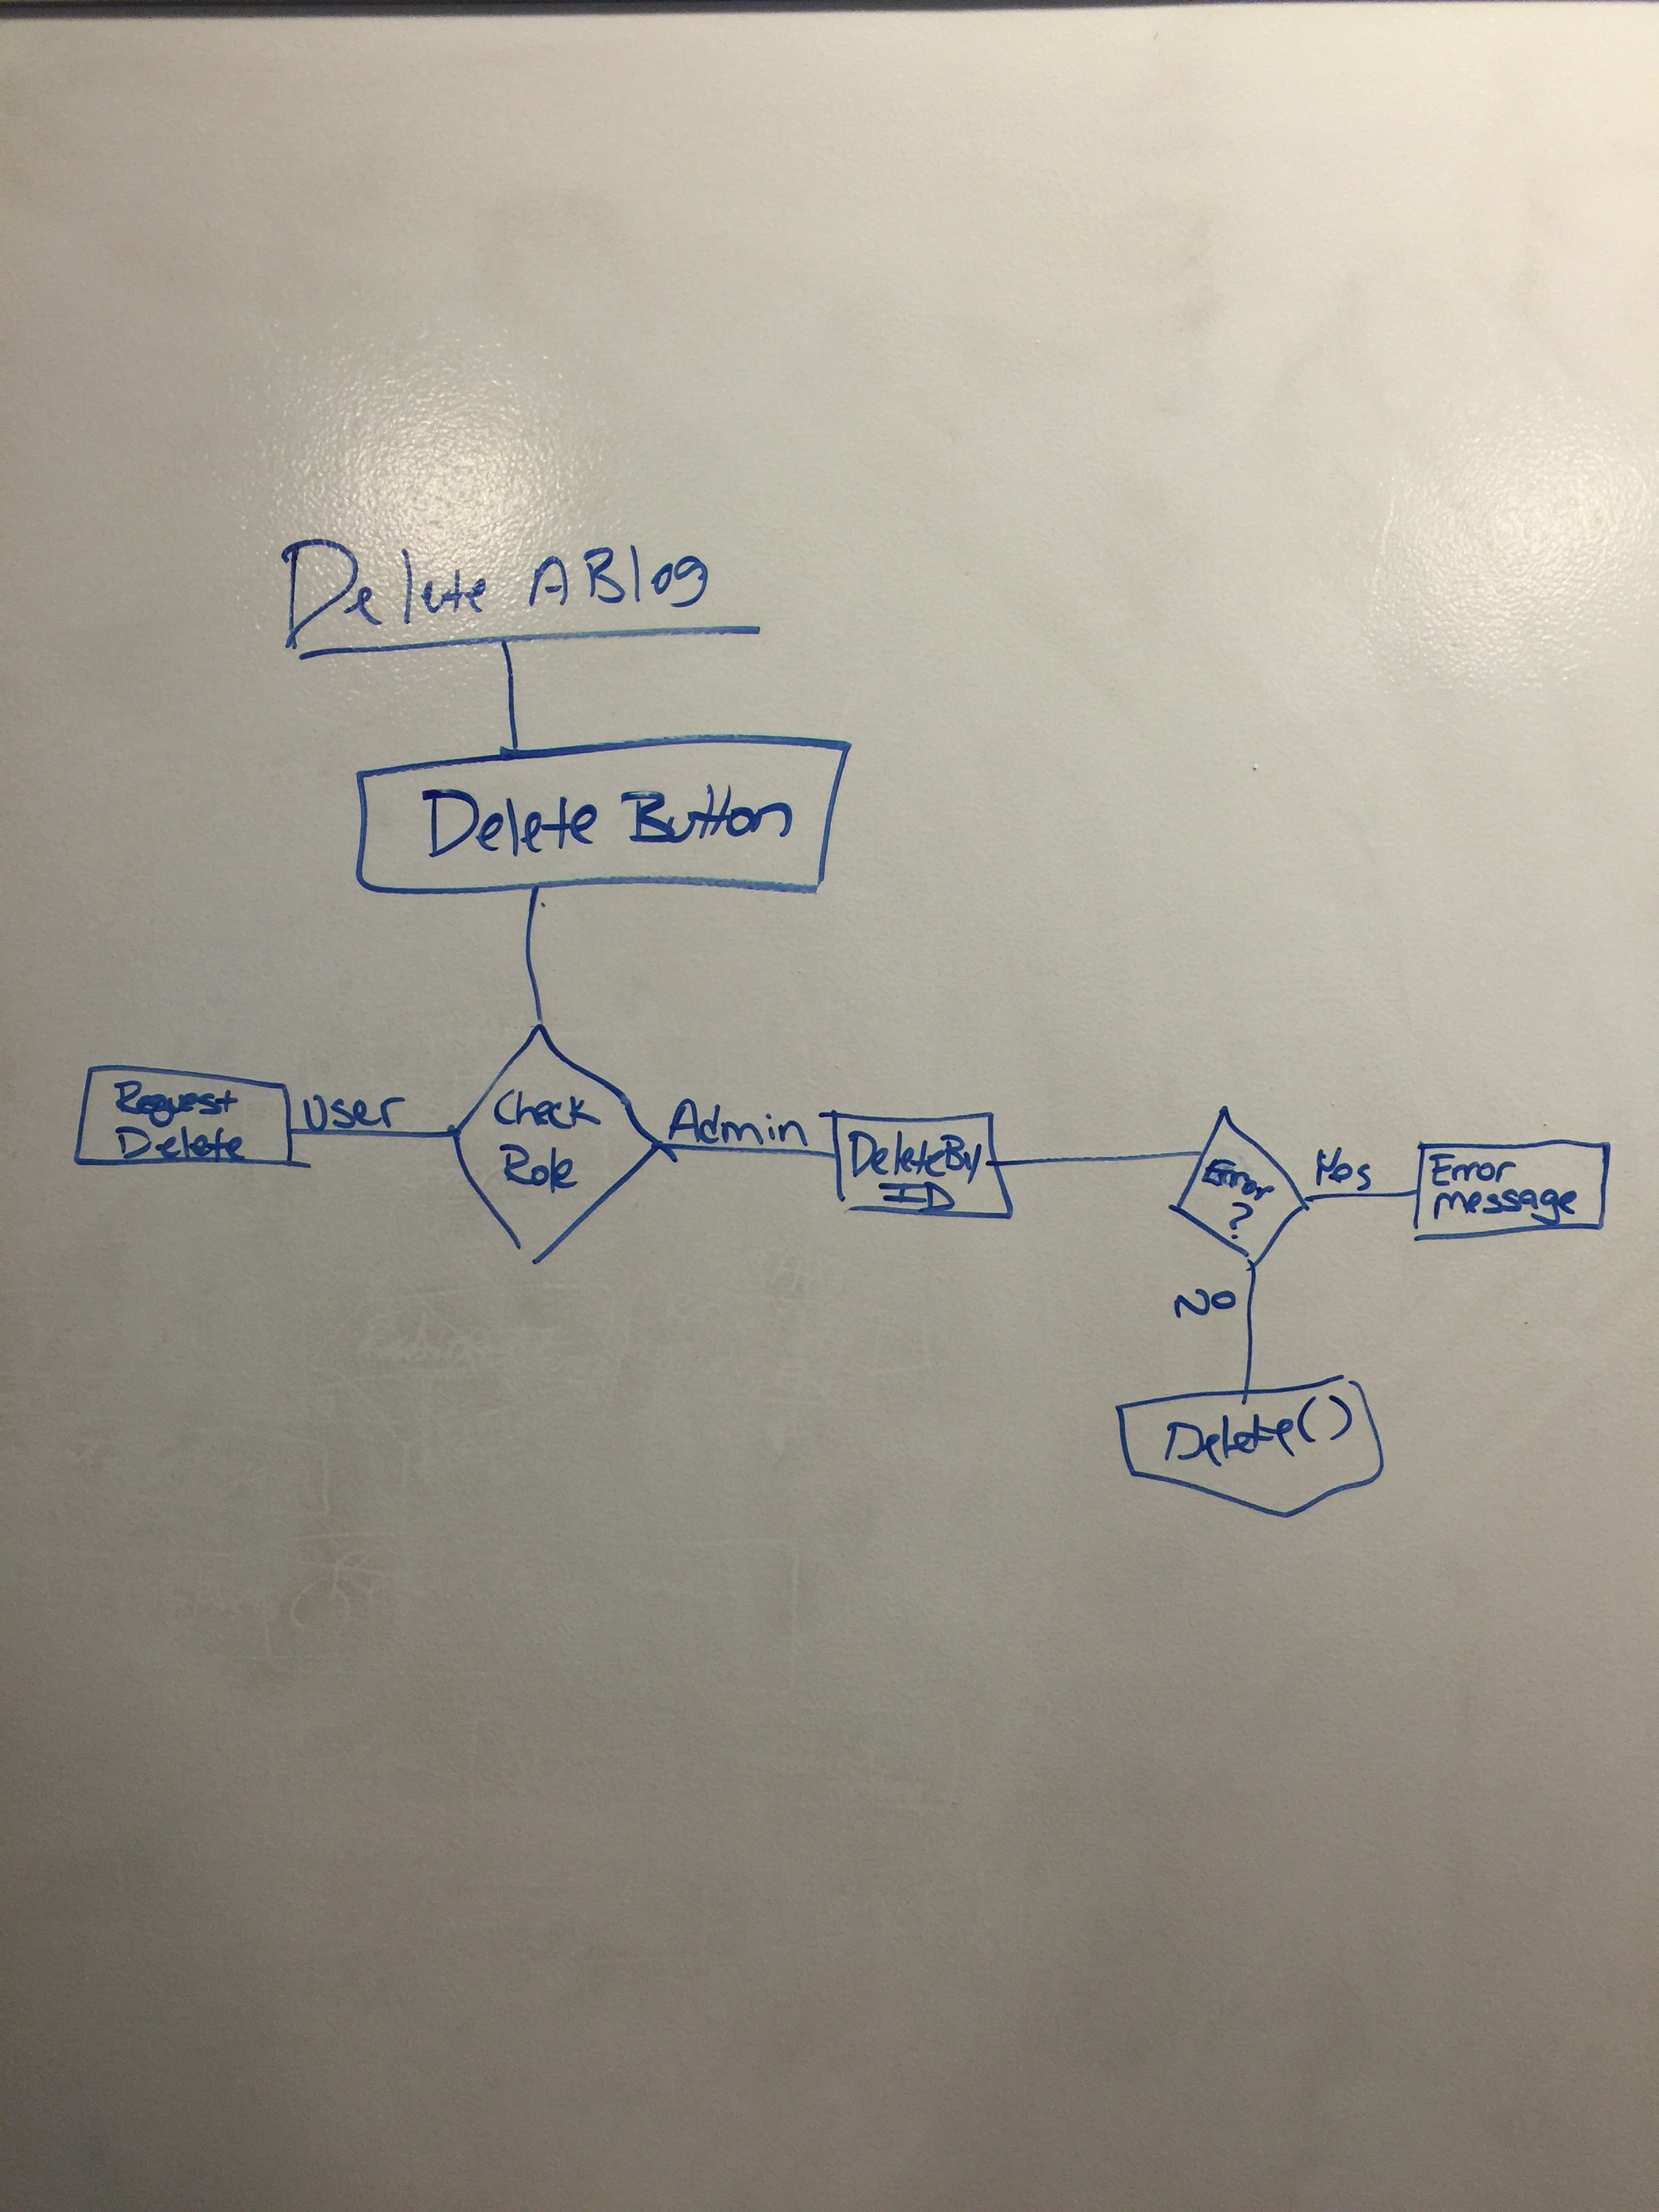 Delete A Blog
Delete Button
Request
Delete
User
Check
Role
Admin
DeleteBy
ID
Error
?
Yes
Error
message
No
Delete()